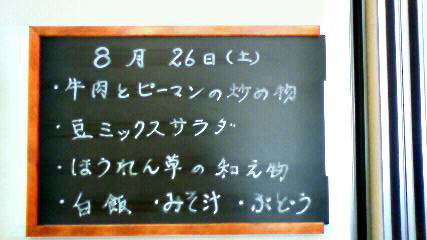 8月 26日(土)
・牛肉とピーマンの炒め物
・豆ミックスサラダ
・ほうれん草の和え物
・白飯 ・みそ汁 ・ぶどう